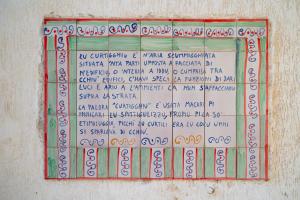 LU CURTIGGHIU È N'ARIA SCUMMIGGHIATA
SITUATA 'NTA PARTI OPPOSTA A FACCIATA DI
N'EDIFICIU, O INTERNA A IDDU, O CUMPRISA TRA
CCHIÙ EDIFICI, C'HAVI SPECI CA FUNZIONI DI DARI
LUCI E ARIA A L'AMBIENTI CA NUN S'AFFACCIANU
SUPRA LA STRATA.
LA PALORA "CURTIGGHIU" È USATA MACARI PI
INDICARI LU SPITTIGULIZZU, PROPRIU PI LA SO
ETIMOLOGIA, PICCHÌ 'NTO CURTILI ERA LU LOCU UNNI
SI SPARRAVA DI CCHIÙ.